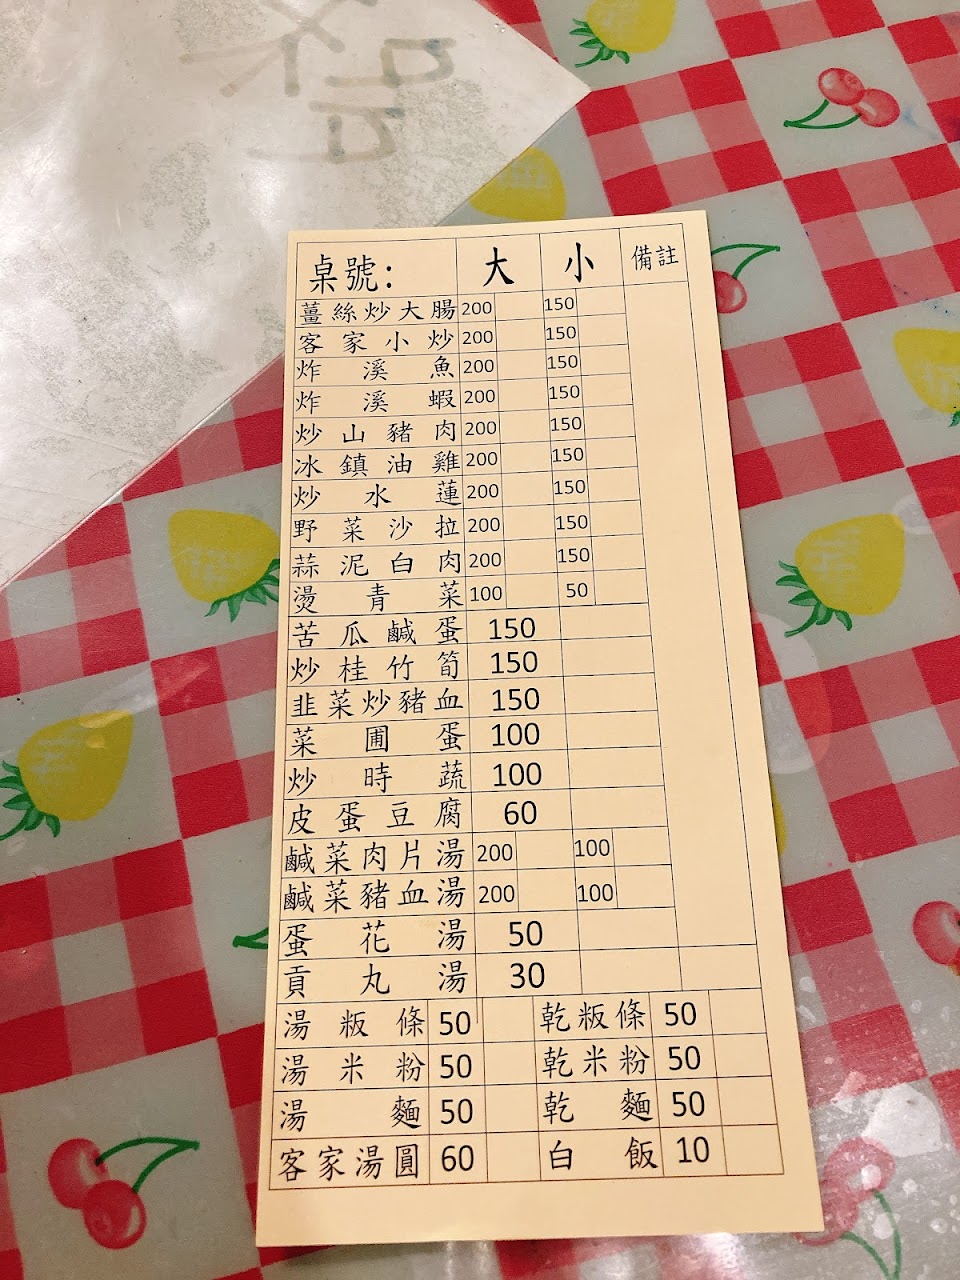 桌號: 大 小 備註
薑絲炒大腸 200 150
客家小炒 200 150
炸溪魚 200 150
炸溪蝦 200 150
炒山豬肉 200 150
冰鎮油雞 200 150
炒水蓮 200 150
野菜沙拉 200 150
蒜泥白肉 200 150
燙青菜 100 50
苦瓜鹹蛋 150
炒桂竹筍 150
韭菜炒豬血 150
菜圃蛋 100
炒時蔬 100
皮蛋豆腐 60
鹹菜肉片湯 200 100
鹹菜豬血湯 200 100
蛋花湯 50
貢丸湯 30
湯粄條 50 乾粄條 50
湯米粉 50 乾米粉 50
湯麵 50 乾麵 50
客家湯圓 60 白飯 10